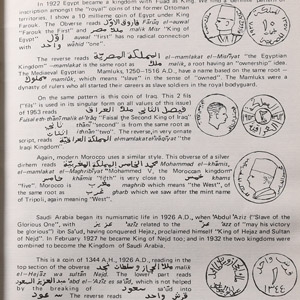 In 1922 Egypt became a kingdom with Fuad as King. We find a
amongst the "royal" coins of the former Ottoman
territories. I show a 10 millieme coin of Egypt under King
Farouk. The Obverse reads فاروق الأول Fārūq al-auwal
"Farouk the First" and ملك مصر malik Misr "King of
Egypt". أول auwal "first" has no radical connection
with واحد wāhid "one".
The reverse reads المملكة المصرية al-mamlakat al-Misrīyat "the Egyptian
Kingdom" -mamlakat is the same root as malik, a root having an "ownership" idea.
The Mediaeval Egyptian Mamluks, 1250-1516 A.D., have a name based on the same root —
مملوك mamlūk, which means "slave" in the sense of "owned". The Mamluks were a
dynasty of rulers who all started their careers as slave soldiers in the royal bodyguard.
On the same pattern is this coin of Iraq. This 2 fils
("fils" is used in its singular form on all values of this issue)
of 1953 reads فيصل الثاني ملك العراق
Faisal eth-thānī malik el-'Irāq "Faisal the Second King of Iraq"
ثاني thānī "second" is from the same root as
اثنان ithnān "two". The reverse, in very similar
script, reads المملكة العراقية al-mamlakat al-'Irāqīyat "the
Iraqi Kingdom".
Again, modern Morocco uses a similar style. This obverse of a silver
dirhem reads محمد الخامس المملكة المغربية Mohammed el-khāmis,
el-mamlakat el-Maghribīyat "Mohammed V, the Moroccan kingdom"
خامس khāmis "fifth" is very close to خمسة khamsa
"five". Morocco is مغرب maghrib which means the "West", of
the same root as غرب gharb which we saw after the mint name
of Tripoli, again meaning "West".
Saudi Arabia began its numismatic life in 1926 A.D., when 'Abdul 'Azīz ("Slave of the
Glorious One", with عزيز 'azīz related to عز 'azz "may his victory
be glorious") Ibn Sa'ud, having conquered Hejaz, proclaimed himself "King of Hejaz and Sultan
of Nejd". In February 1927 he became King of Nejd too; and in 1932 the two kingdoms were
combined to become the Kingdom of Saudi Arabia.
This is a coin of 1344 A.H., 1926 A.D., reading in the
top section of the obverse ملك الحجاز وسلطان نجد malik
el-Hejāz wa sultān Nejd. The lower part reads
عبد العزيز السعود 'abd al 'azīz es sa'ūd, which is not helped
by the breaking of سعود sa'ūd into
سعود. The reverse reads قرش واحد